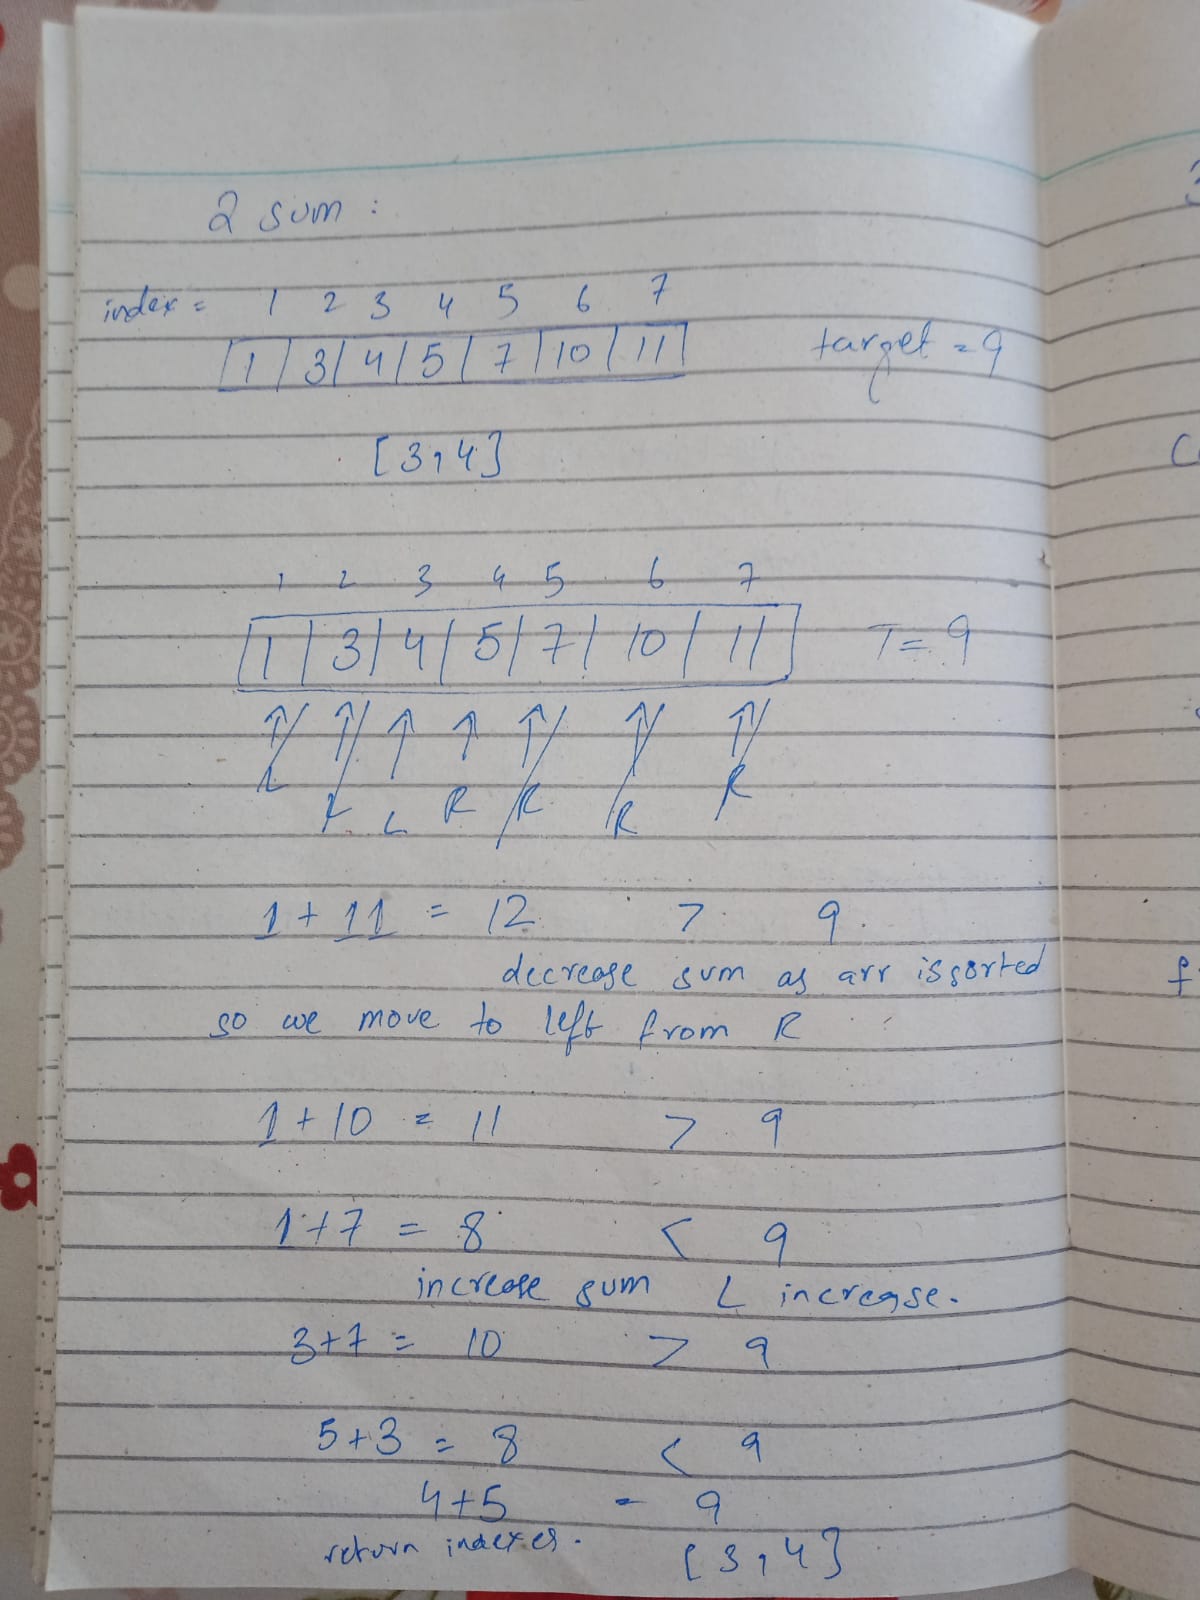 2 sum :
index = 1 2 3 4 5 6 7
1 | 3 | 4 | 5 | 7 | 10 | 11 target = 9
[3,4]
1 2 3 4 5 6 7
1 | 3 | 4 | 5 | 7 | 10 | 11 T = 9
↑ ↑ ↑ ↑ ↑ ↑ ↑
L L L R R R R
1 + 11 = 12 > 9.
decrease sum as arr is sorted
so we move to left from R
1 + 10 = 11 > 9
1 + 7 = 8 < 9
increase sum L increase.
3 + 7 = 10 > 9
5 + 3 = 8 < 9
4 + 5 = 9
return indexes. [3,4]